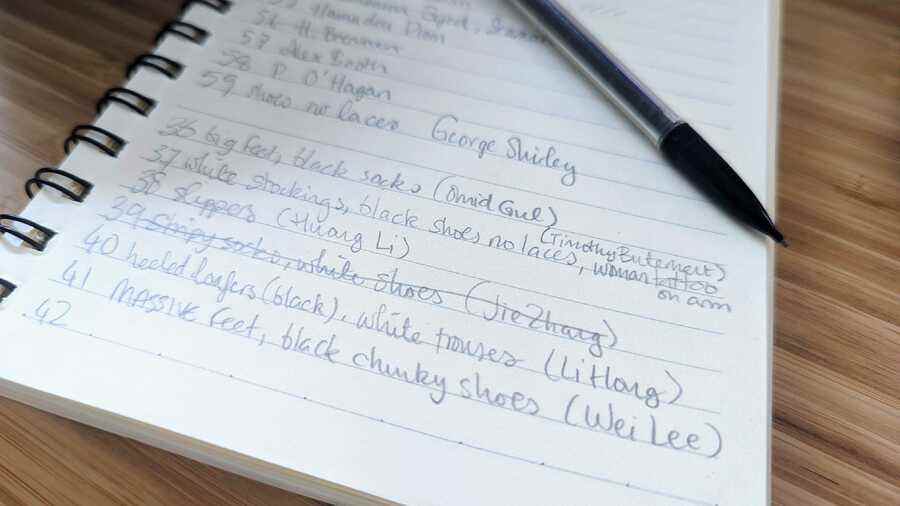 H. Brennan
57 Alex
58 P. O'Hagan
59 shoes no laces George Shirley
36 big feet, black socks (Omid Gul)
37 white stockings, black shoes no laces, woman tattoo
(Timothy Butement)
on arm
38 slippers (Huang Li)
39 stripy socks, white shoes (Jie Zhang)
40 heeled loafers (black), white trouses (Li Hong)
41 MASSIVE feet, black chunky shoes (Wei Lee)
42